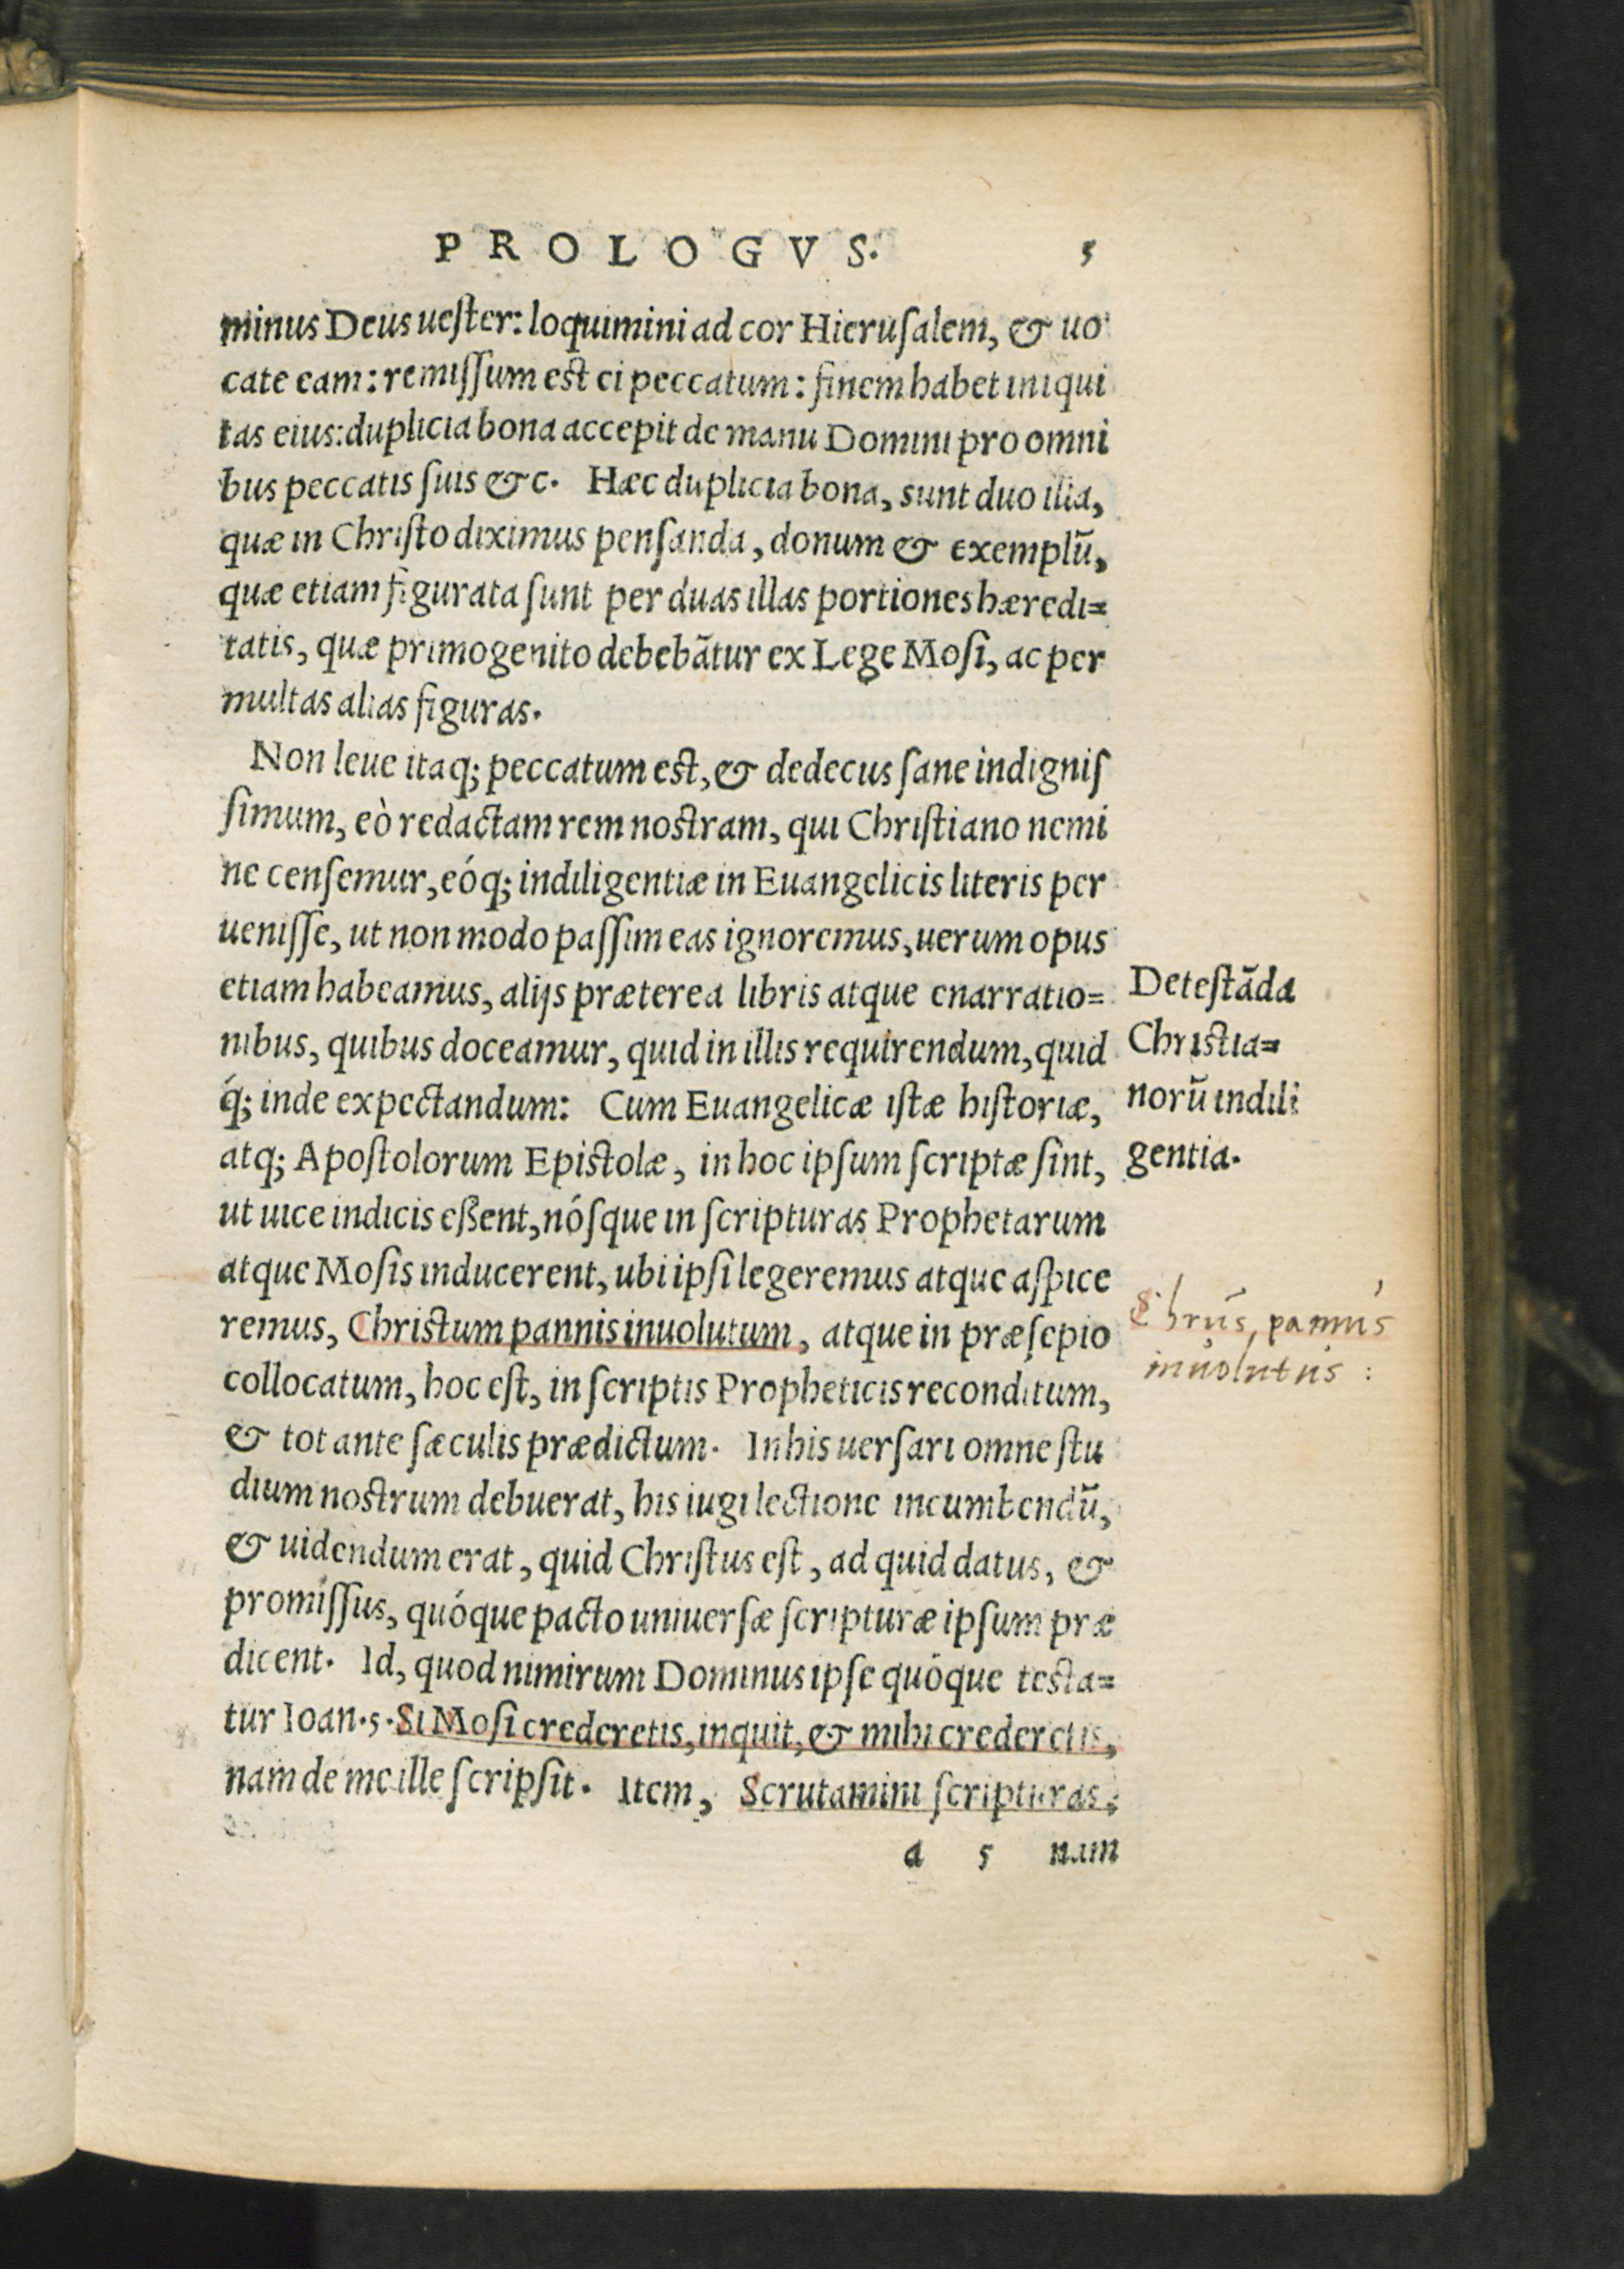 PROLOGVS. 5
minus Deus ueſter: loquimini ad cor Hieruſalem, & uo
cate eam: remiſſum est ei peccatum: finem habet iniqui
tas eius: duplicia bona accepit de manu Domini pro omni
bus peccatis ſuis &c. Hæc duplicia bona, sunt duo illa,
quæ in Chriſto diximus penſanda, donum & exemplũ,
quæ etiam figurata ſunt per duas illas portiones hæredi=
tatis, quæ primogenito debebãtur ex Lege Moſi, ac per
multas alias figuras.
Non leue itaq; peccatum est, & dedecus ſane indigniſ
ſimum, eò redactam rem nostram, qui Chriſtiano nomi
ne cenſemur, eóq; indiligentiæ in Euangelicis literis per
ueniſſe, ut non modo paſſim eas ignoremus, uerum opus
etiam habeamus, alijs præterea libris atque enarratio=
nibus, quibus doceamur, quid in illis requirendum, quid
q́; inde expectandum: Cum Euangelicæ iſtæ hiſtoriæ,
atq; Apoſtolorum Epistolæ, in hoc ipſum ſcriptæ ſint,
ut uice indicis eßent, nóſque in ſcripturas Prophetarum
atque Moſis inducerent, ubi ipſi legeremus atque aſpice
remus, Christum pannis inuolutum, atque in præſepio
collocatum, hoc eſt, in ſcriptis Propheticis reconditum,
& tot ante ſæculis prædictum. In his uerſari omne ſtu
dium nostrum debuerat, his iugi lectione incumbendũ,
& uidendum erat, quid Chriſtus eſt, ad quid datus, &
promiſſus, quóque pacto uniuerſæ ſcripturæ ipſum præ
dicent. Id, quod nimirum Dominus ipſe quóque testa=
tur Ioan.5. Si Moſi crederetis, inquit, & mihi crederetis,
nam de me ille ſcripſit. Item, Scrutamini ſcripturas,
a 5 nam
Deteſtãda
Christia=
norũ indili
gentia.
Chrũs pannis
inuolutus :